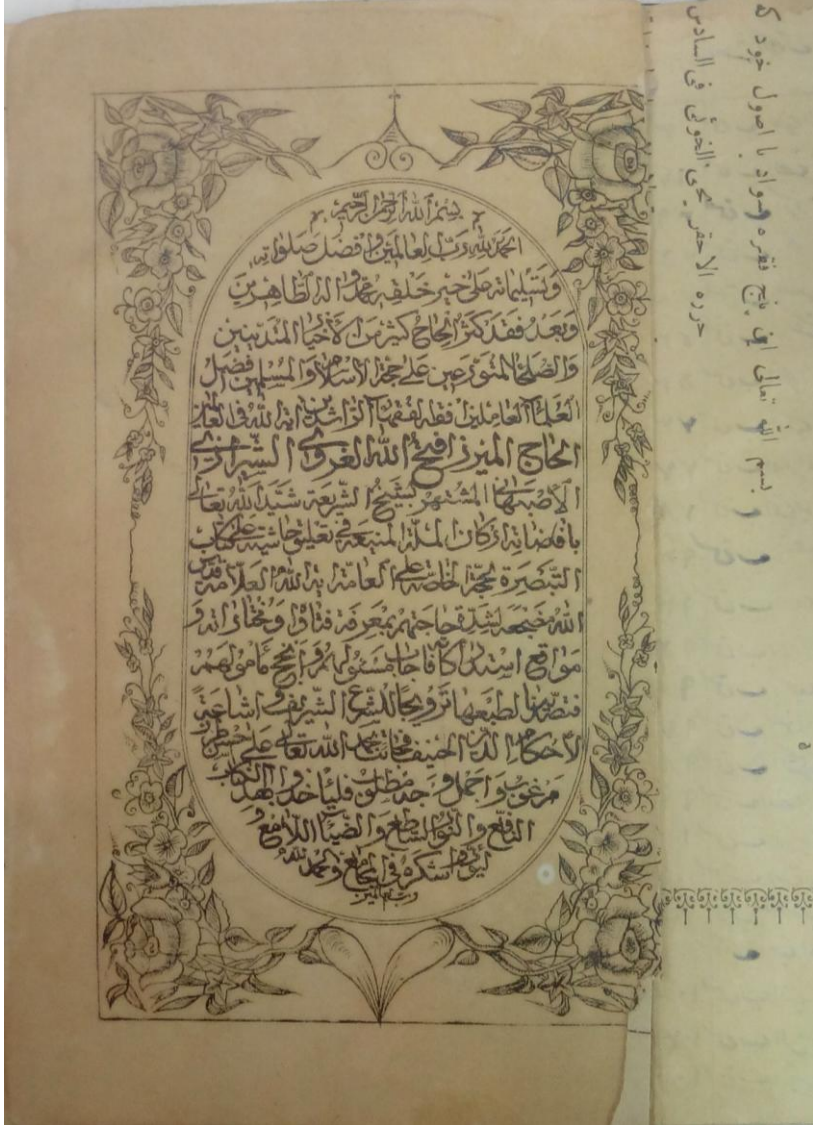 بسم الله الرحمن الرحيم
الحمد لله رب العالمين وافضل صلواته
وتسليماته على خير خلقه محمد واله الطاهرين
وبعد فقد كثر الحاح كثير من الاخيار المتدينين
والصلحاء المتورعين على حجة الاسلام والمسلمين افضل
العلماء العاملين افقه الفقهاء الراشدين اية الله في العالمين
الحاج الميرزا فتح الله الغروي الشيرازي
الأصبهاني المشتهر بشيخ الشريعة شيد الله تعالى
بافضاته اركان الملة المنيعة في تعليق حاشية على كتاب
التبصرة لحجة الخاصة على العامة اية الله العلامة قدس
الله مضجعه لشدة حاجتهم بمعرفة فتاواه ومختاراته و
مواقع استدراكاته فاجاب مسئولهم وانجح مأمولهم
فتصديها لطبعها ترويجا للشرع الشريف واشاعة
لأحكام الدين الحنيف فجائت بحمد الله تعالى على احسن طرز
مرغوب واجمل وجه مطلوب فليأخذوا بهذا الكتاب
النافع والنور الساطع والضياء اللامع و
ليؤدوا شكره في المجامع والحمد لله
رب العالمين
بسم الله تعالى این پنج فقره سواد با اصول خود که
حرره الاحقر يحيى الخوئي في السادس